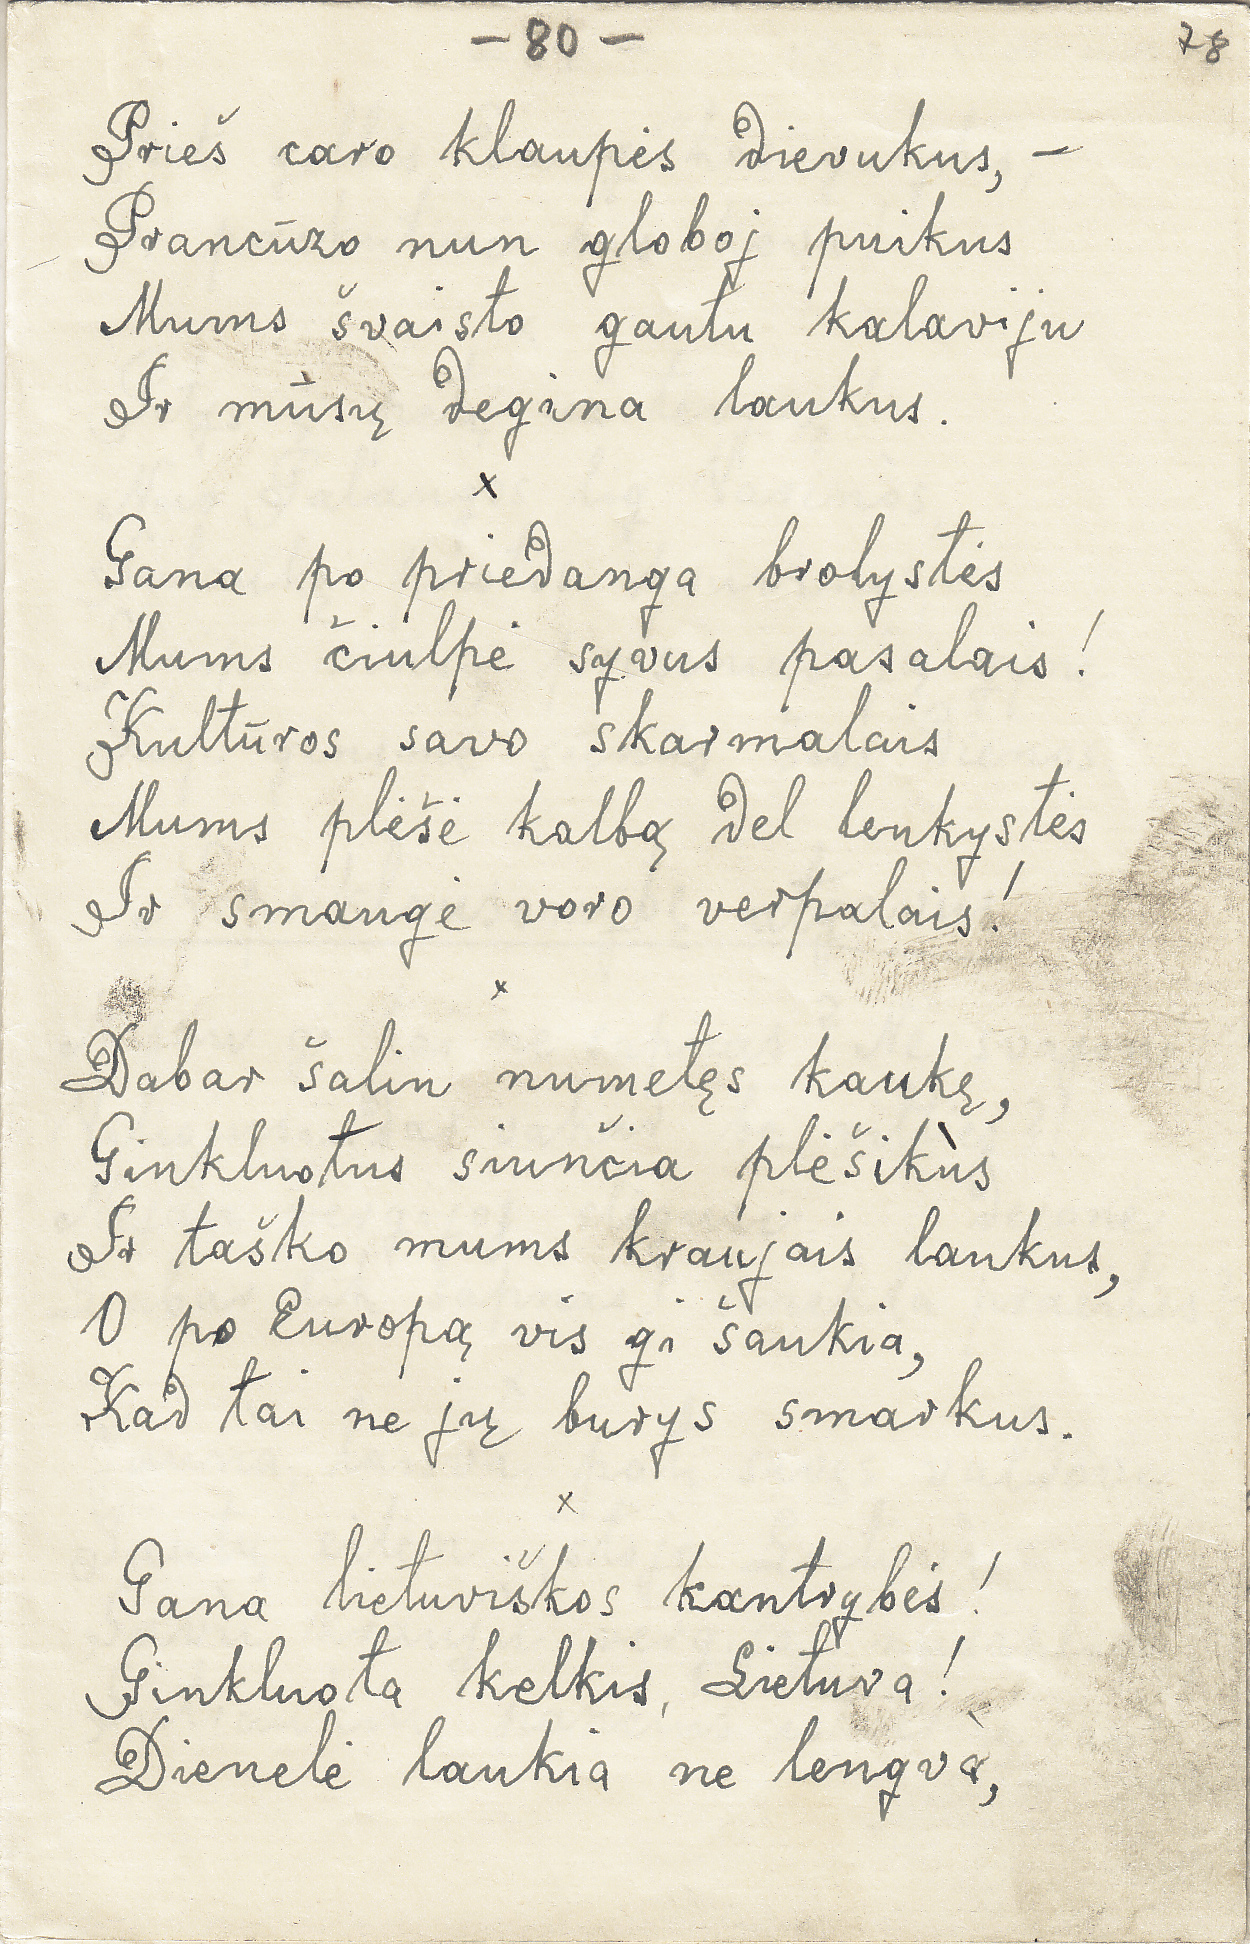 – 80 –
78
Prieš caro klaupės dievukus, –
Prancūzo nun globoj puikus
Mums švaisto gautu kalaviju
Ir mūsų degina laukus.
x
Gana po priedanga brolystės
Mums čiulpė syvus pasalais!
Kultūros savo skarmalais
Mums plėšė kalbą del lenkystės
Ir smaugė voro verpalais!
x
Dabar šalin numetęs kaukę,
Ginkluotus siunčia plėšikùs
Ir taško mums kraujais laukus,
O po Europą vis gi šaukia,
Kad tai ne jų burys smarkus.
x
Gana lietuviškos kantrybės!
Ginkluota kelkis, Lietuva!
Dienelė laukia ne lengvà,